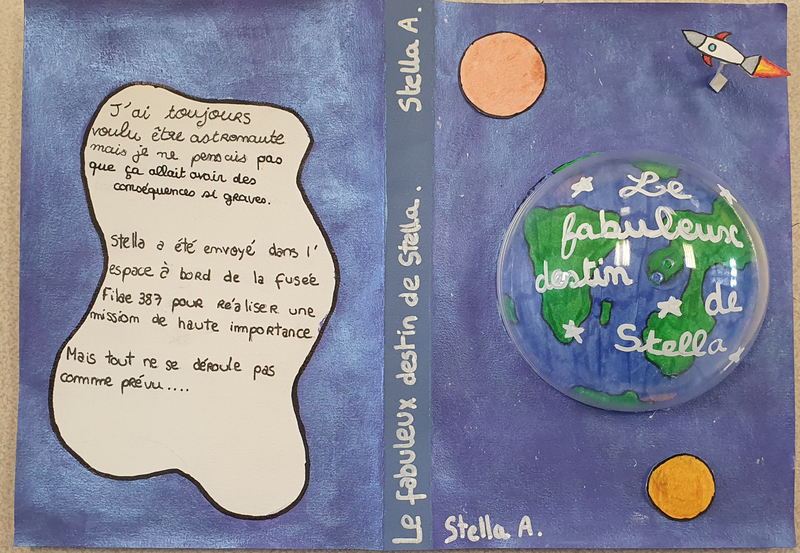 J'ai toujours
voulu être astronaute
mais je ne pensais pas
que ça allait avoir des
conséquences si graves.
Stella a été envoyé dans l'
espace à bord de la fusée
Filae 387 pour réaliser une
mission de haute importance
Mais tout ne se déroule pas
comme prévu....
Le fabuleux destin de Stella. Stella A.
Le
fabuleux
destin
de
Stella
Stella A.